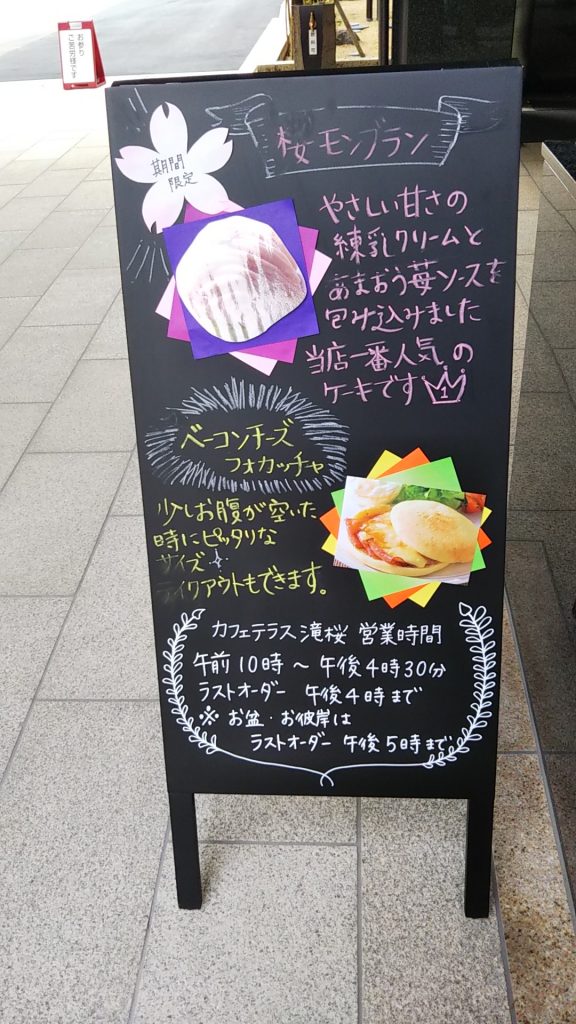 お参り
ご苦労様です
期間
限定
桜モンブラン
やさしい甘さの
練乳クリームと
あまおう苺ソースを
包み込みました
当店一番人気の
ケーキです
1
ベーコンチーズ
フォカッチャ
少しお腹が空いた
時にピッタリな
サイズ
テイクアウトもできます。
カフェテラス滝桜 営業時間
午前10時～午後4時30分
ラストオーダー 午後4時まで
※ お盆・お彼岸は
ラストオーダー 午後5時まで